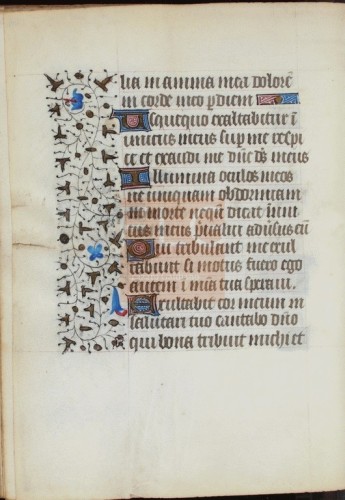 lia in anima mea dolorē
in corde meo p̄ diem
Usquequo exaltabitur ī
imicus meus sup̱ me respi
ce et exaudi me dn̄e ds̄ meus
Illumina oculos meos
ne umquam obdormiam
in morte nequā dicat inimi
cus meus p̱ualui aduersus eū
Qui tribulant me exul
tabunt si motus fuero ego
autem ī mīa tua speraui.
Exultabit cor meum in
salutari tuo cantabo dn̄o
qui bona tribuit michi et